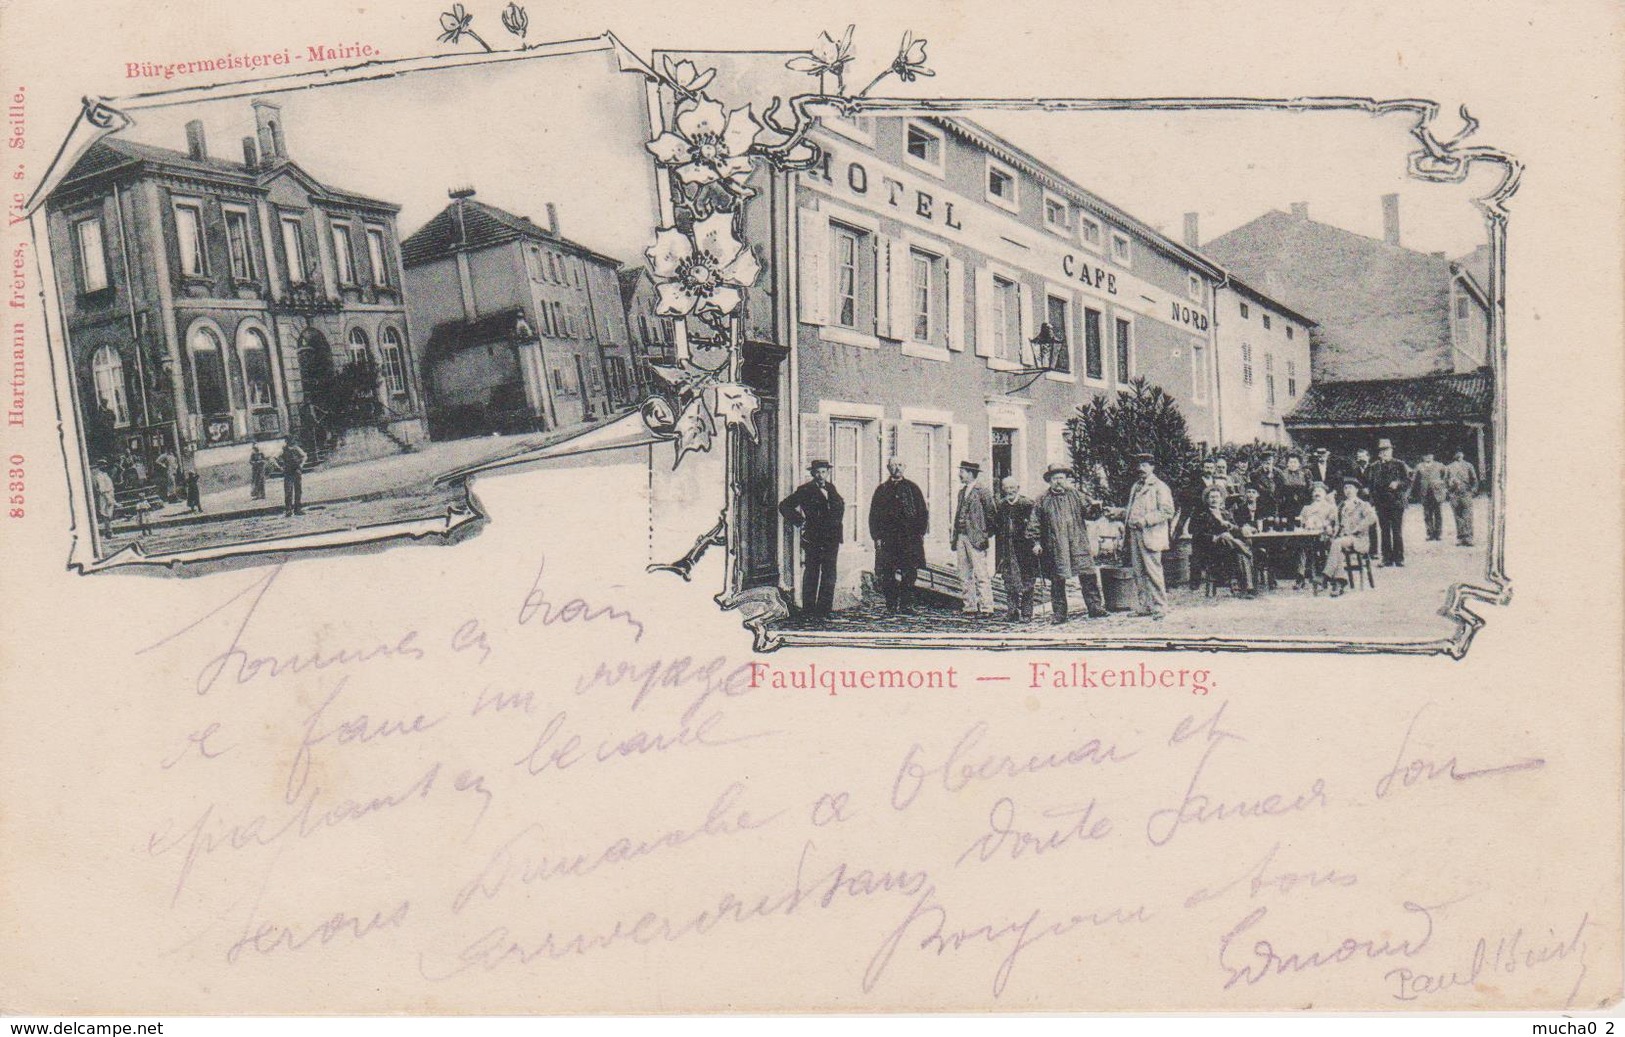 Bürgermeisterei - Mairie.
85330 Hartmann frères, Vic s. Seille.
HOTEL — CAFE — NORD
Faulquemont — Falkenberg.
Sommes en train
de faire un voyage
épatant en
serons Dimanche à Obernai et
arriverons sans doute Samedi soir
Bonjour à tous
Edmond
Paul
www.delcampe.net
mucha0 2